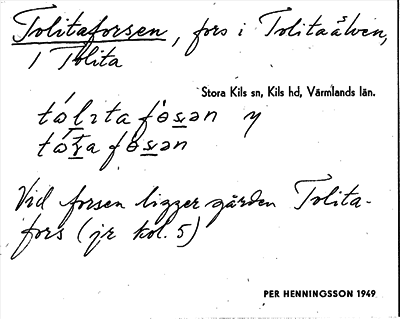 Tolitaforsen, fors i Tolitaälven,
1 Tolita
Stora Kils sn, Kils hd, Värmlands län.
tólıta fòsən y
tóta fòsən
Vid forsen ligger gården Tolita-
fors (jr kol. 5)
PER HENNINGSSON 1949